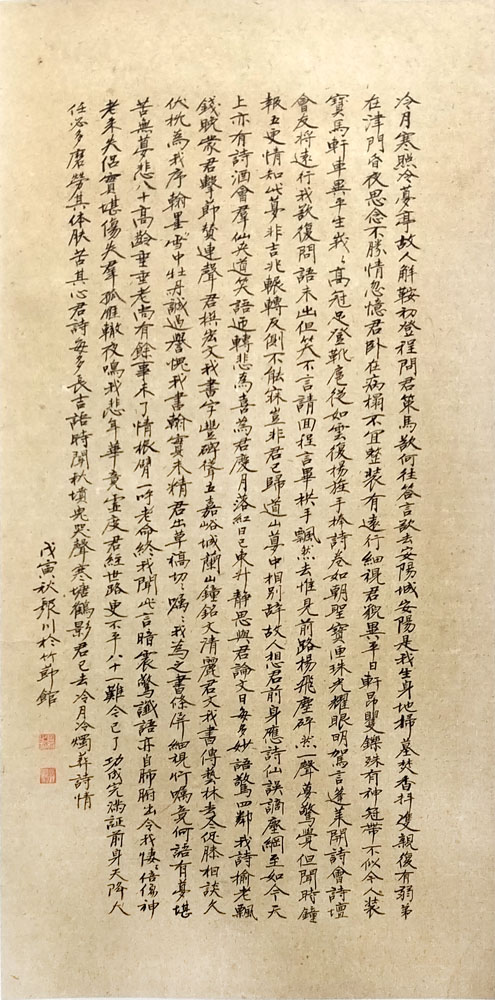 冷月寒照冷夢亭故人解鞍初登程問君策馬欲何往答言欲去安陽城安陽是我生身地掃墓焚香拜雙親復有弱弟
在津門白夜思念不勝情忽憶君卧在病榻不宜整裝有遠行細視君貌異平日軒昂矍鑠殊有神冠帶不似今人裝
寶馬軒車異平生峨〻高冠足登靴扈從如雲復楊旌手捧詩卷如朝聖寶匣珠光耀眼明駕言蓬萊開詩會詩壇
會友將遠行我欲復問語未出但笑不言請回程言畢拱手飄然去惟見前路楊飛塵砰然一聲夢驚覺但聞時鐘
報五更情知此夢非吉兆輾轉反側不能寐豈非君已歸道山夢中相別辞故人想君前身應詩仙誤謫塵網至如今天
上亦有詩酒會羣仙央道欠語迊轉悲為喜為君慶月落紅日已東升靜思與君論文日每多妙語驚四鄰我詩榆老飄
錢晚蒙君擊節赞連聲君撰宏文我書字豐碑聳立嘉峪城蘭山鐘銘文清麗君文我書傳藝林去今促膝相談久
伏枕為我序翰墨雪中牡丹誠過譽愧我書翰實未精君出草稿切〻嘱〻我為之書條屏細視行嘱竟何語有夢堪
苦無夢悲八十高齡垂垂老尚有餘事未了情振臂一呼老命終我聞此言暗震驚讖語亦自肺腑出令我悽〻倍傷神
老來失侶實堪傷失羣孤雁轍夜鳴我悲年華竟虛度君經世路更不平八十一難今已了功成完滿証前身天降大
任必多磨勞其体肤苦其心君詩每多長吉語時聞秋墳鬼哭聲寒塘鶴影君已去冷月冷獨葬詩情
戊寅秋 川於竹節館